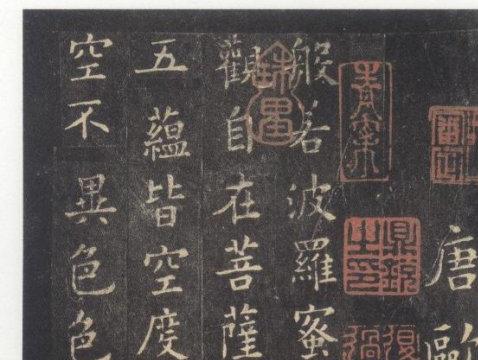 唐歐
般若波羅蜜
觀自在菩薩
五蘊皆空度
空不異色色